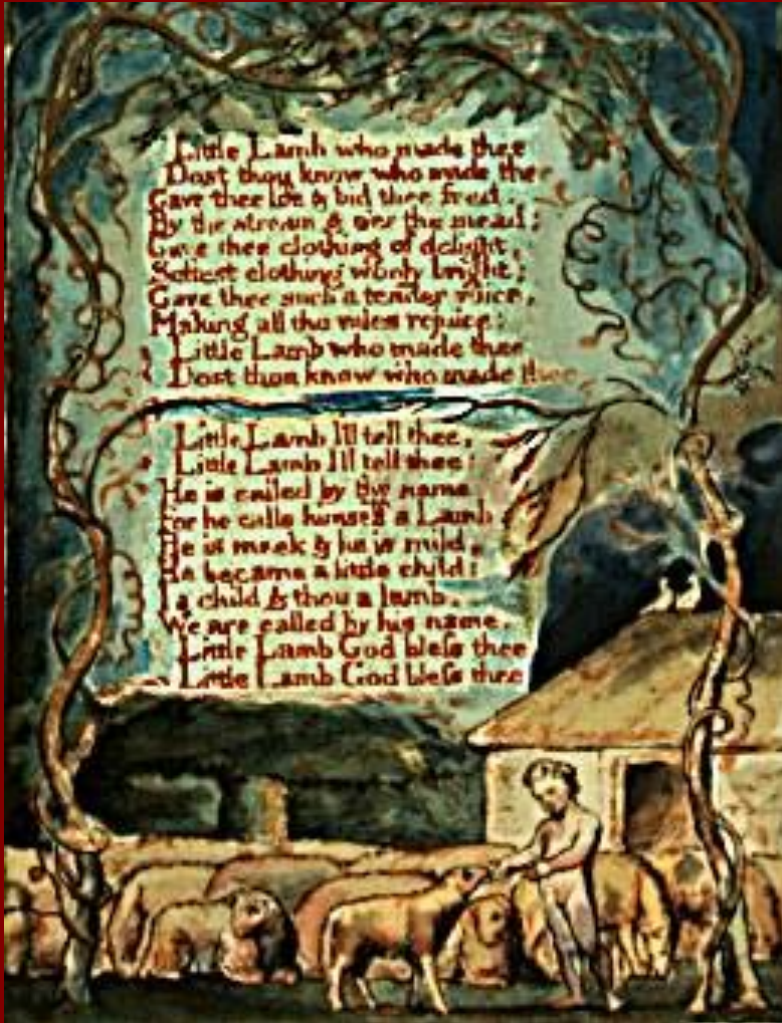 Little Lamb who made thee
Dost thou know who made thee
Gave thee life & bid thee feed.
By the stream & oer the mead;
Gave thee clothing of delight,
Softest clothing wooly bright;
Gave thee such a tender voice,
Making all the vales rejoice:
Little Lamb who made thee
Dost thou know who made thee
Little Lamb I'll tell thee,
Little Lamb I'll tell thee:
He is called by thy name,
For he calls himself a Lamb:
He is meek & he is mild,
He became a little child:
I a child & thou a lamb,
We are called by his name.
Little Lamb God bless thee
Little Lamb God bless thee